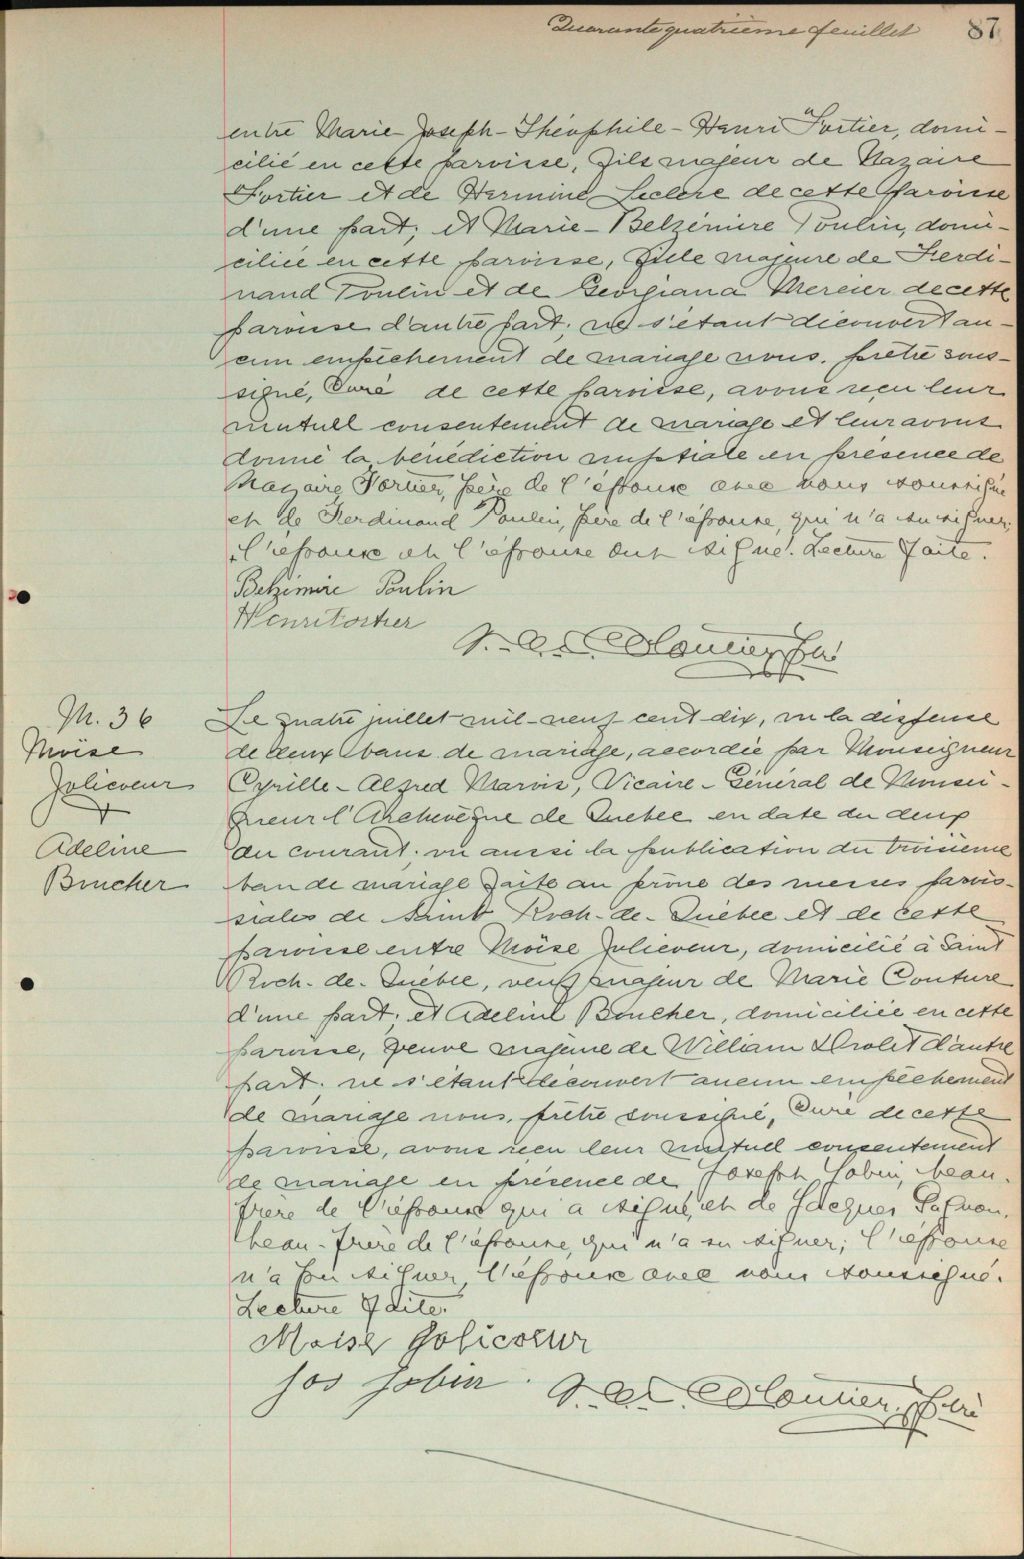 Quarante quatrième feuillet 87
entre Marie-Joseph-Théophile-Henri Fortier, domi-
cilié en cette paroisse, fils majeur de Nazaire
Fortier et de Hermine Leclerc de cette paroisse
d'une part; et Marie-Belzémire Poulin, domi-
ciliée en cette paroisse, fille majeure de Ferdi-
nand Poulin et de Georgiana Mercier de cette
paroisse d'autre part; ne s'étant découvert au-
cun empêchement de mariage nous, prêtre sous-
signé, Curé de cette paroisse, avons reçu leur
mutuel consentement de mariage et leur avons
donné la bénédiction nuptiale en présence de
Nazaire Fortier, père de l'époux avec nous soussigné
et de Ferdinand Poulin, père de l'épouse, qui n'a su signer;
l'époux et l'épouse ont signé. Lecture faite.
Belzémire Poulin
Henri Fortier
Ptre
M. 36
Moïse
Jolicoeur
+
Adeline
Boucher
Le quatre juillet mil-neuf cent dix, vu la dispense
de deux bans de mariage, accordée par Monseigneur
Cyrille-Alfred Marois, Vicaire-Général de Monsei-
gneur l'Archevêque de Québec en date du deux
du courant; vu aussi la publication du troisième
ban de mariage faite au prône des messes parois-
siales de Saint Roch-de-Québec et de cette
paroisse entre Moïse Jolicoeur, domicilié à Saint
Roch-de-Québec, veuf majeur de Marie Couture
d'une part; et Adeline Boucher, domiciliée en cette
paroisse, veuve majeure de William Drolet d'autre
part; ne s'étant découvert aucun empêchement
de mariage nous, prêtre soussigné, Curé de cette
paroisse, avons reçu leur mutuel consentement
de mariage en présence de Joseph Jobin, beau-
frère de l'époux qui a signé, et de Jacques Gagnon,
beau-frère de l'épouse, qui n'a su signer; l'épouse
n'a pu signer, l'époux avec nous soussigné.
Lecture faite.
Moise Jolicoeur
Jos Jobin
Ptre